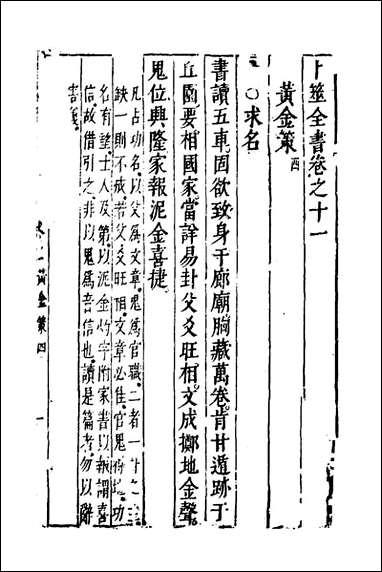 卜筮全書卷之十一
黃金策四
○求名
書讀五車。固欲致身于廊廟。胸藏萬卷。肯甘遁跡于
丘園。要相國家。當詳易卦。父爻旺相。文成擲地金聲。
鬼位興隆。家報泥金喜捷。
凡占功名。以父爲文章。鬼爲官職。二者一卦之主
缺一則不成。若父爻旺相。文章必佳。官鬼得地。功
名有望。士人及第。以泥金竹字附家書以報。謂喜
信。故借引之。非以鬼爲音信也。讀是篇者。勿以辭
害意。
黃金策四 一